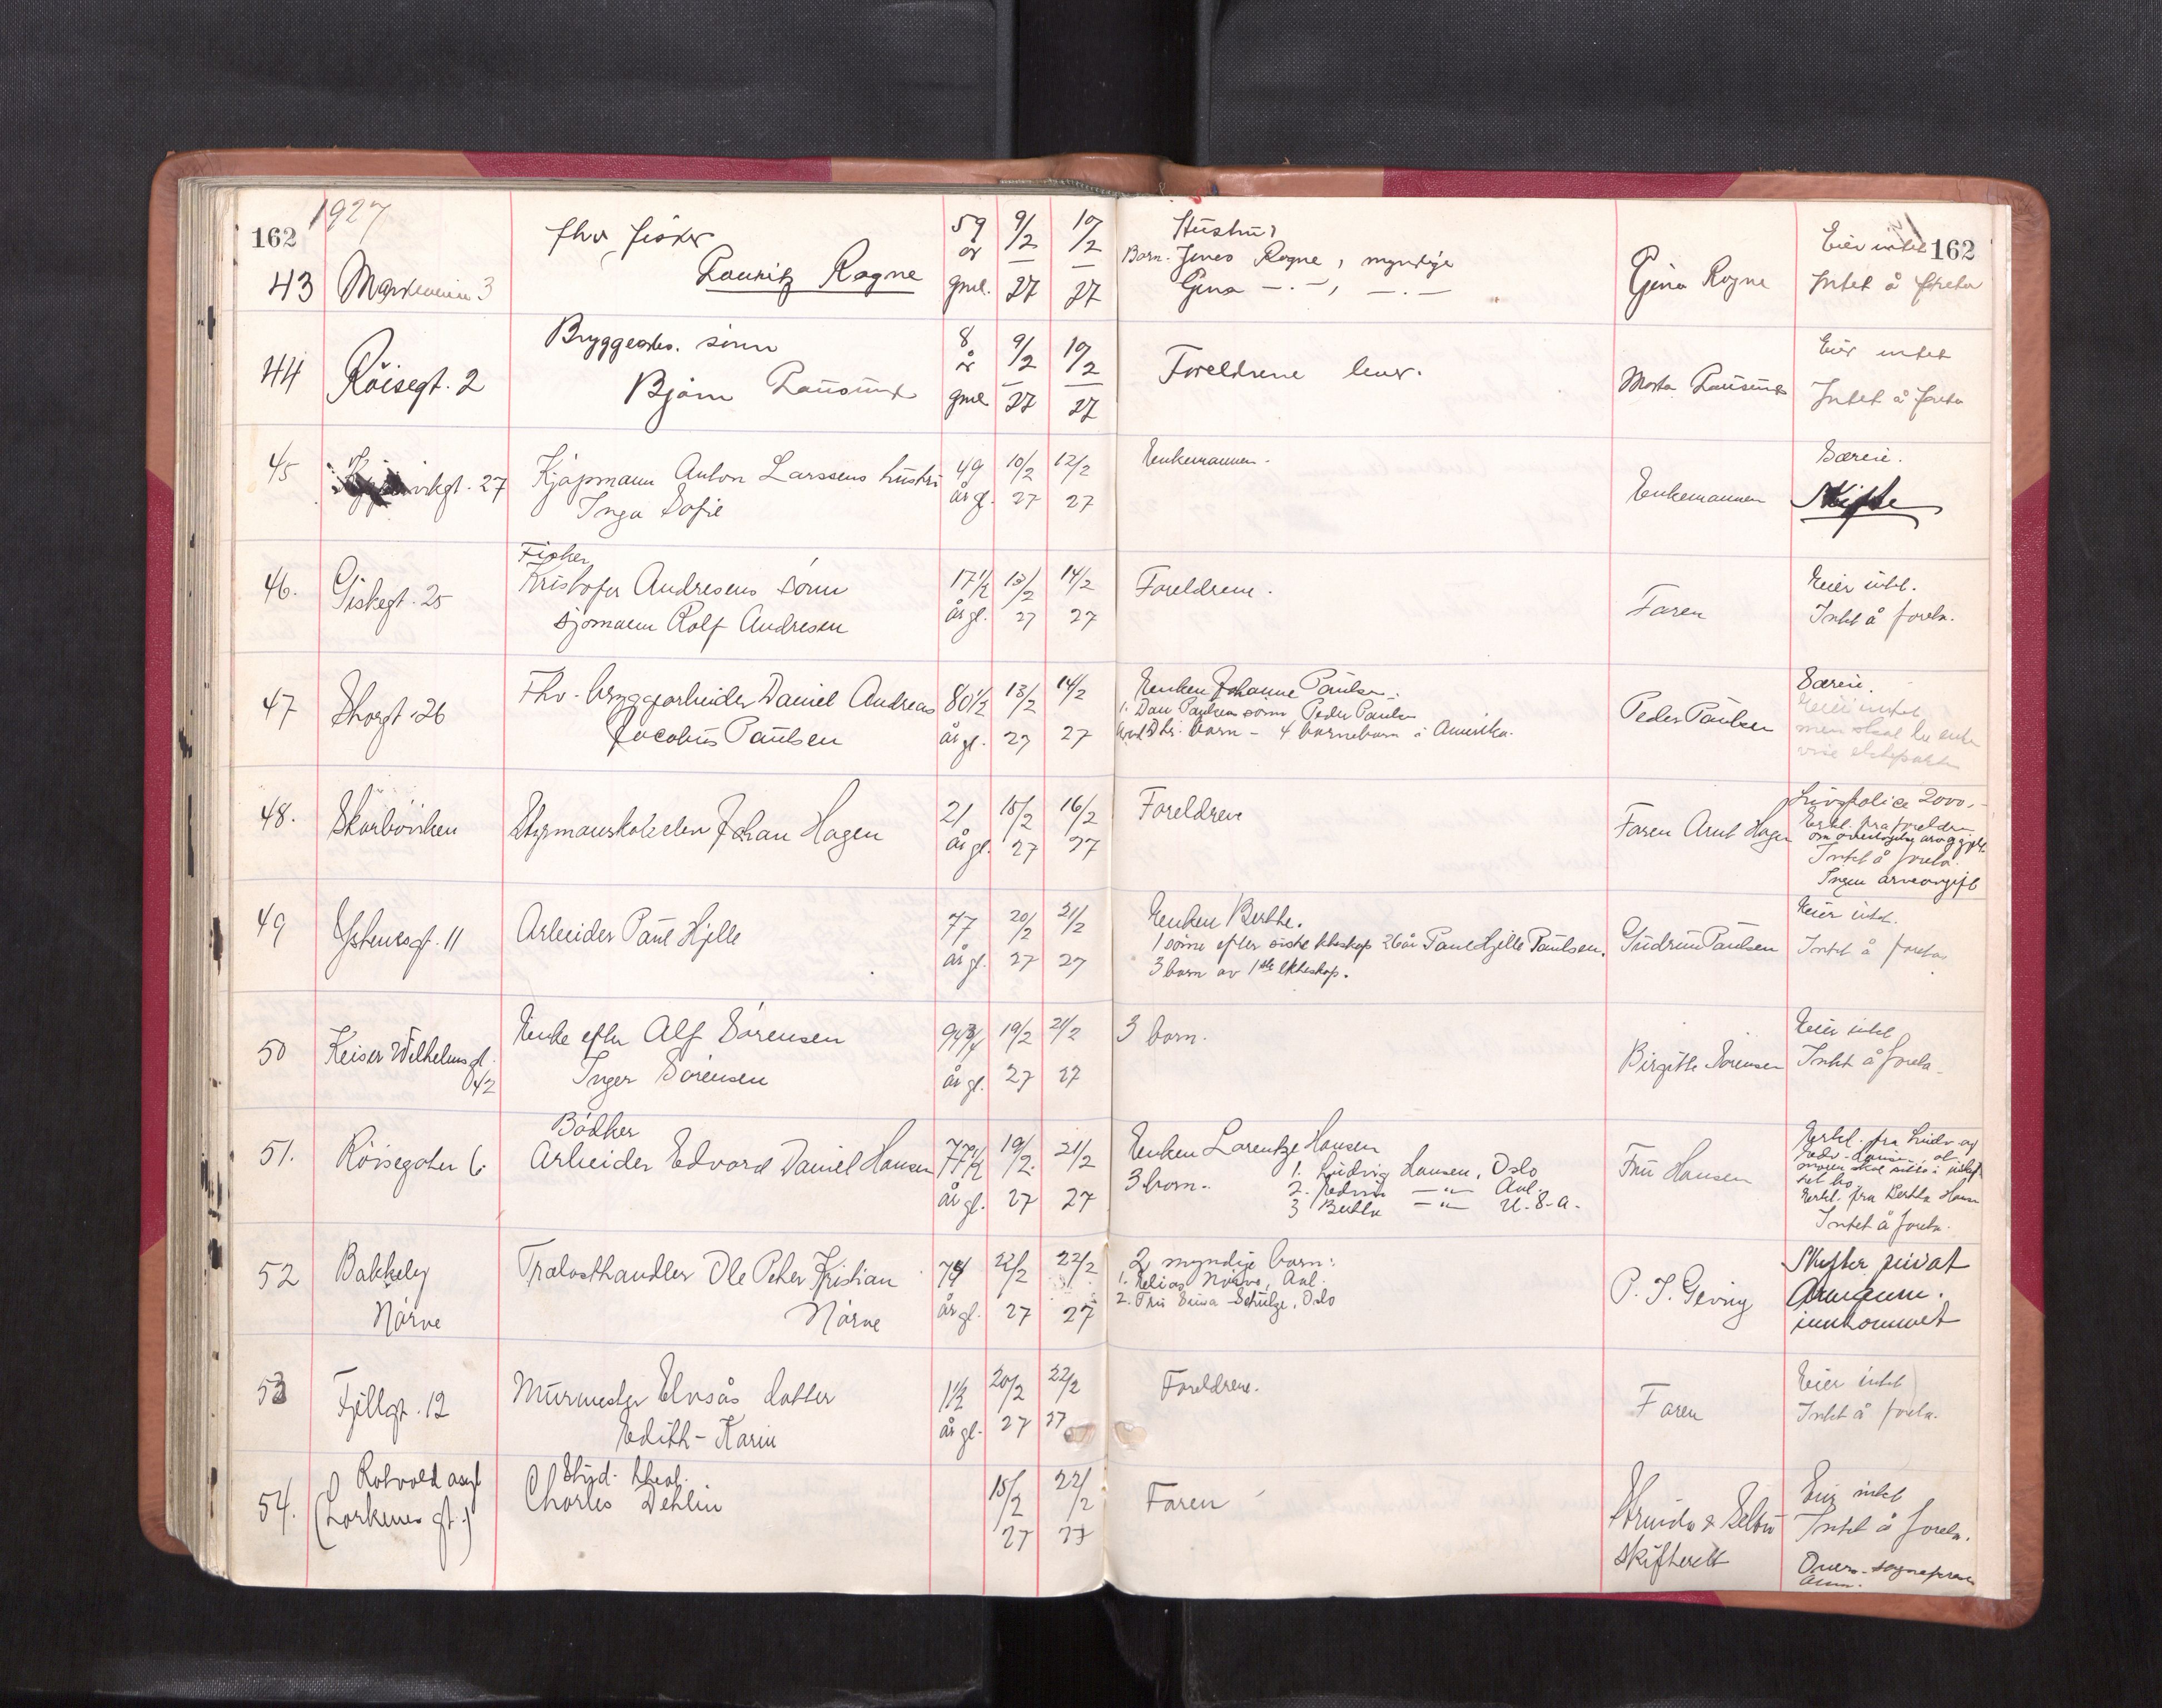 1927
162
162
43
fhv fisker
Lauritz Rogne
59 år gml.
9/2 27
10/2 27
Hustru
Barn. Jenes Rogne, myndige
Gina —.—, —.—
Gina Rogne
Eier intet
Intet å foreta
44
Röisegt. 2
Bryggearb. sönn
Björn
8 år gml
9/2 27
10/2 27
Foreldrene lever.
Marta
Eier intet
Intet å foreta
45
27
Kjöpmann Anton Larssens hustru
Inga Sofie
49 år gl.
10/2 27
12/2 27
Enkemannen.
Enkemannen
Særeie.
Skifte
46.
Giskegt. 25
Fisker
Kristofer Andresens sönn
sjömann Rolf Andresen
17½ år gl.
13/2 27
14/2 27
Foreldrene.
Faren
Eier intet.
Intet å foreta.
47
Storgt. 26
Fhv. bryggearbeider Daniel Andreas
Jacobus Paulsen
80½ år gl.
13/2 27
14/2 27
Enken Johanne Paulsen.
1. Dan Paulsen sönn Peder Paulsen
barn - 4 barnebarn i Amerika.
Peder Paulsen
Særeie.
Eier intet
men skal
48.
Skarböviken
Styrmannskoleelev Johan Hagen
21 år gl.
15/2 27
16/2 27
Foreldrene
Faren Arnt Hagen
Livspolice 2000,-
Erkl. fra foreldre
om
Intet å foreta.
Ingen arveavgift
49
Ystenesgt. 11
Arbeider Paul Hjelle
77 år gl.
20/2 27
21/2 27
Enken Berthe.
1 sönn efter siste ekteskap 26 år Paul Hjelle Paulsen.
3 barn av 1ste ekteskap.
Gudrun Paulsen
Eier intet.
Intet å foreta
50
Keiser Wilhelmsgt.
42
Enke efter Alf Sörensen
Inger Sörensen
år gl.
19/2 27
21/2 27
3 barn.
Birgitte Sörensen
Eier intet
Intet å foreta.
51.
Röisegaten 6.
Bödker
Arbeider Edvard Daniel Hansen
77½ år gl.
19/2. 27
21/2 27
Enken Lorentze Hansen
3 barn. 1. Ludvig Hansen, Oslo
2. Edvin —"— Aal.
3 Bertha —"— U.S.A.
Fru Hansen
Erkl. fra Ludv. og
Edv. Hansen, at
moren skal sitte i uskif-
tet bo
Erkl. fra Bertha Hansen
Intet å foreta.
52
Bakkely
Nörve
Trælasthandler Ole Peter Kristian
Nörve
74 år gl.
22/2 27
22/2 27
2 myndige barn:
1. Elias Nörve, Aal.
2. Fru Schulze, Oslo
P. J. Geving
Skifter privat
innkommet
53
Fjellgt. 12
Murmester Elvsås datter
Edith-Karin
1½ år gl.
20/2 27
22/2 27
Foreldrene.
Faren
Eier intet
Intet å foreta.
54.
Rotvold asyl
(Lorkenes gt.)
Stud. theol.
Charles Dehlin
15/2 27
22/2 27
Faren
Strinda & Selbu
skifterett
Eier intet
Intet å foreta.